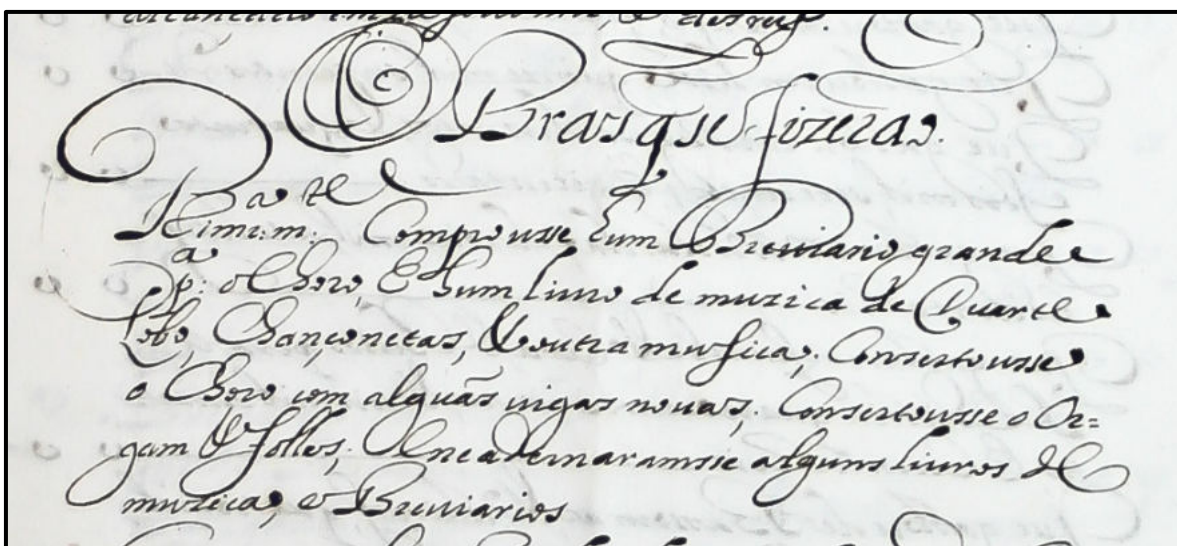 Obras q se fizerao.
Primr.m.te Comprousse hum Breviario grande
pa. o Choro, E hum livro de muzica de Duarte
Lobo, Chançonetas, & outra musica; Consertousse
o Choro com alguãs vigas novas; Consertousse o Or=
gam & folles; Encadernaramsse alguns livros de
muzica, e Breviarios